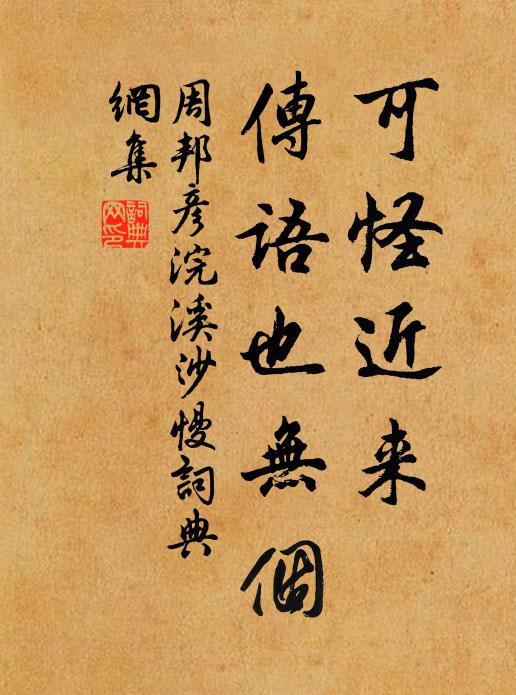 可怪近来
傳語也無個
周邦彦浣溪沙慢詞典
網集
詞典
网印